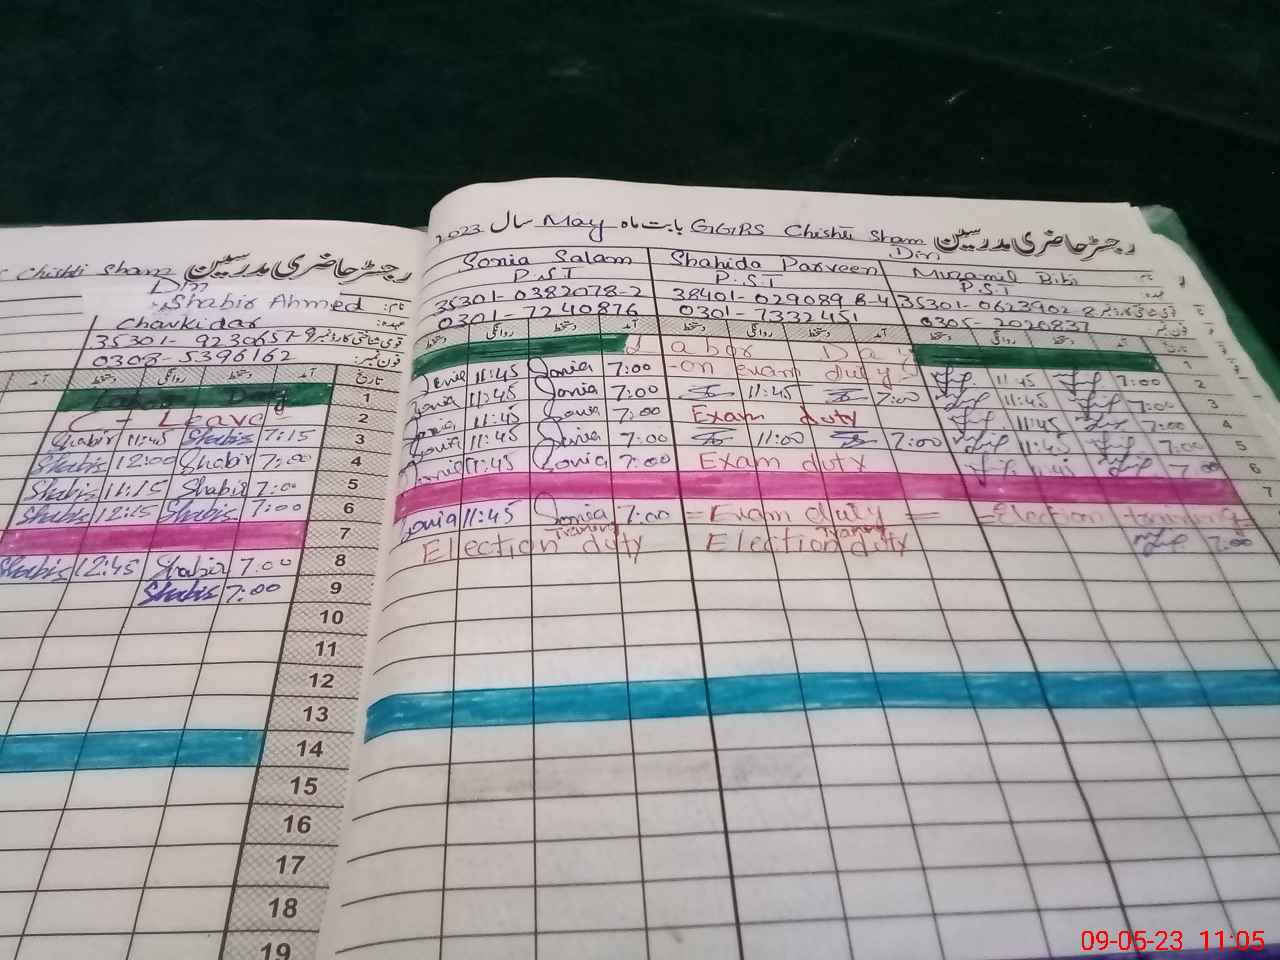 رجسٹر حاضری مدرسین Chishti Sham Din
نام: Shabir Ahmed
عہدہ: Chowkidar
قومی شناختی کارڈ نمبر 35301-9230657-9
فون نمبر: 0308-5396162
تاریخ آمد دستخط روانگی دستخط آمد
1 Labour Day
2 C - Leave
3 7:15 Shabir 11:45 Shabir
4 7:00 Shabir 12:00 Shabir
5 7:00 Shabir 11:15 Shabir
6 7:00 Shabir 12:15 Shabir
7
8 7:00 Shabir 12:45 Shabir
9 7:00 Shabir
10
11
12
13
14
15
16
17
18
19
رجسٹر حاضری مدرسین GGPS Chishti Sham Din بابت ماہ May سال 2023
Sonia Salam Shahida Parveen Muzamil Bibi نام
P.S.T P.S.T P.S.T عہدہ
35301-0382078-2 38401-029089 8-4 35301-0623902-8 قومی شناختی کارڈ نمبر
0301-7240876 0301-7332451 0305-2020837 فون نمبر
دستخط روانگی دستخط آمد دستخط روانگی دستخط آمد دستخط روانگی دستخط آمد تاریخ
Labor Day 1
Sonia 11:45 Sonia 7:00 -on exam duty- 11:45 7:00 2
Sonia 11:45 Sonia 7:00 11:45 7:00 11:45 7:00 3
Sonia 11:45 Sonia 7:00 Exam duty 11:45 7:00 4
Sonia 11:45 Sonia 7:00 11:00 7:00 11:45 7:00 5
Sonia 11:45 Sonia 7:00 Exam duty 11:45 7:00 6
7
Sonia 11:45 Sonia 7:00 = Exam duty = =Election training=
Election Training duty Election Training duty 7:00
09-05-23 11:05